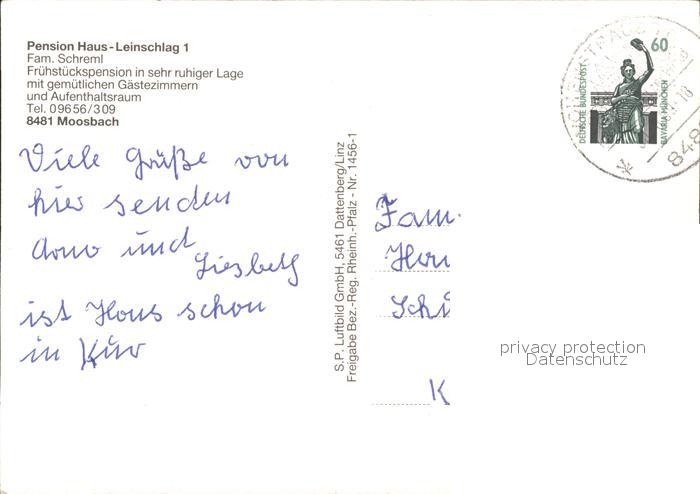 Pension Haus-Leinschlag 1
Fam. Schreml
Frühstückspension in sehr ruhiger Lage
mit gemütlichen Gästezimmern
und Aufenthaltsraum
Tel. 09656/309
8481 Moosbach
Viele Grüße von
hier senden
und
Liesbeth
ist Hans schon
in Kur
S.P. Luftbild GmbH, 5461 Dattenberg/Linz
Freigabe Bez.-Reg. Rheinh.-Pfalz - Nr. 1456-1
60
DEUTSCHE BUNDESPOST
BAVARIA MÜNCHEN
848
Fam.
K
privacy protection
Datenschutz